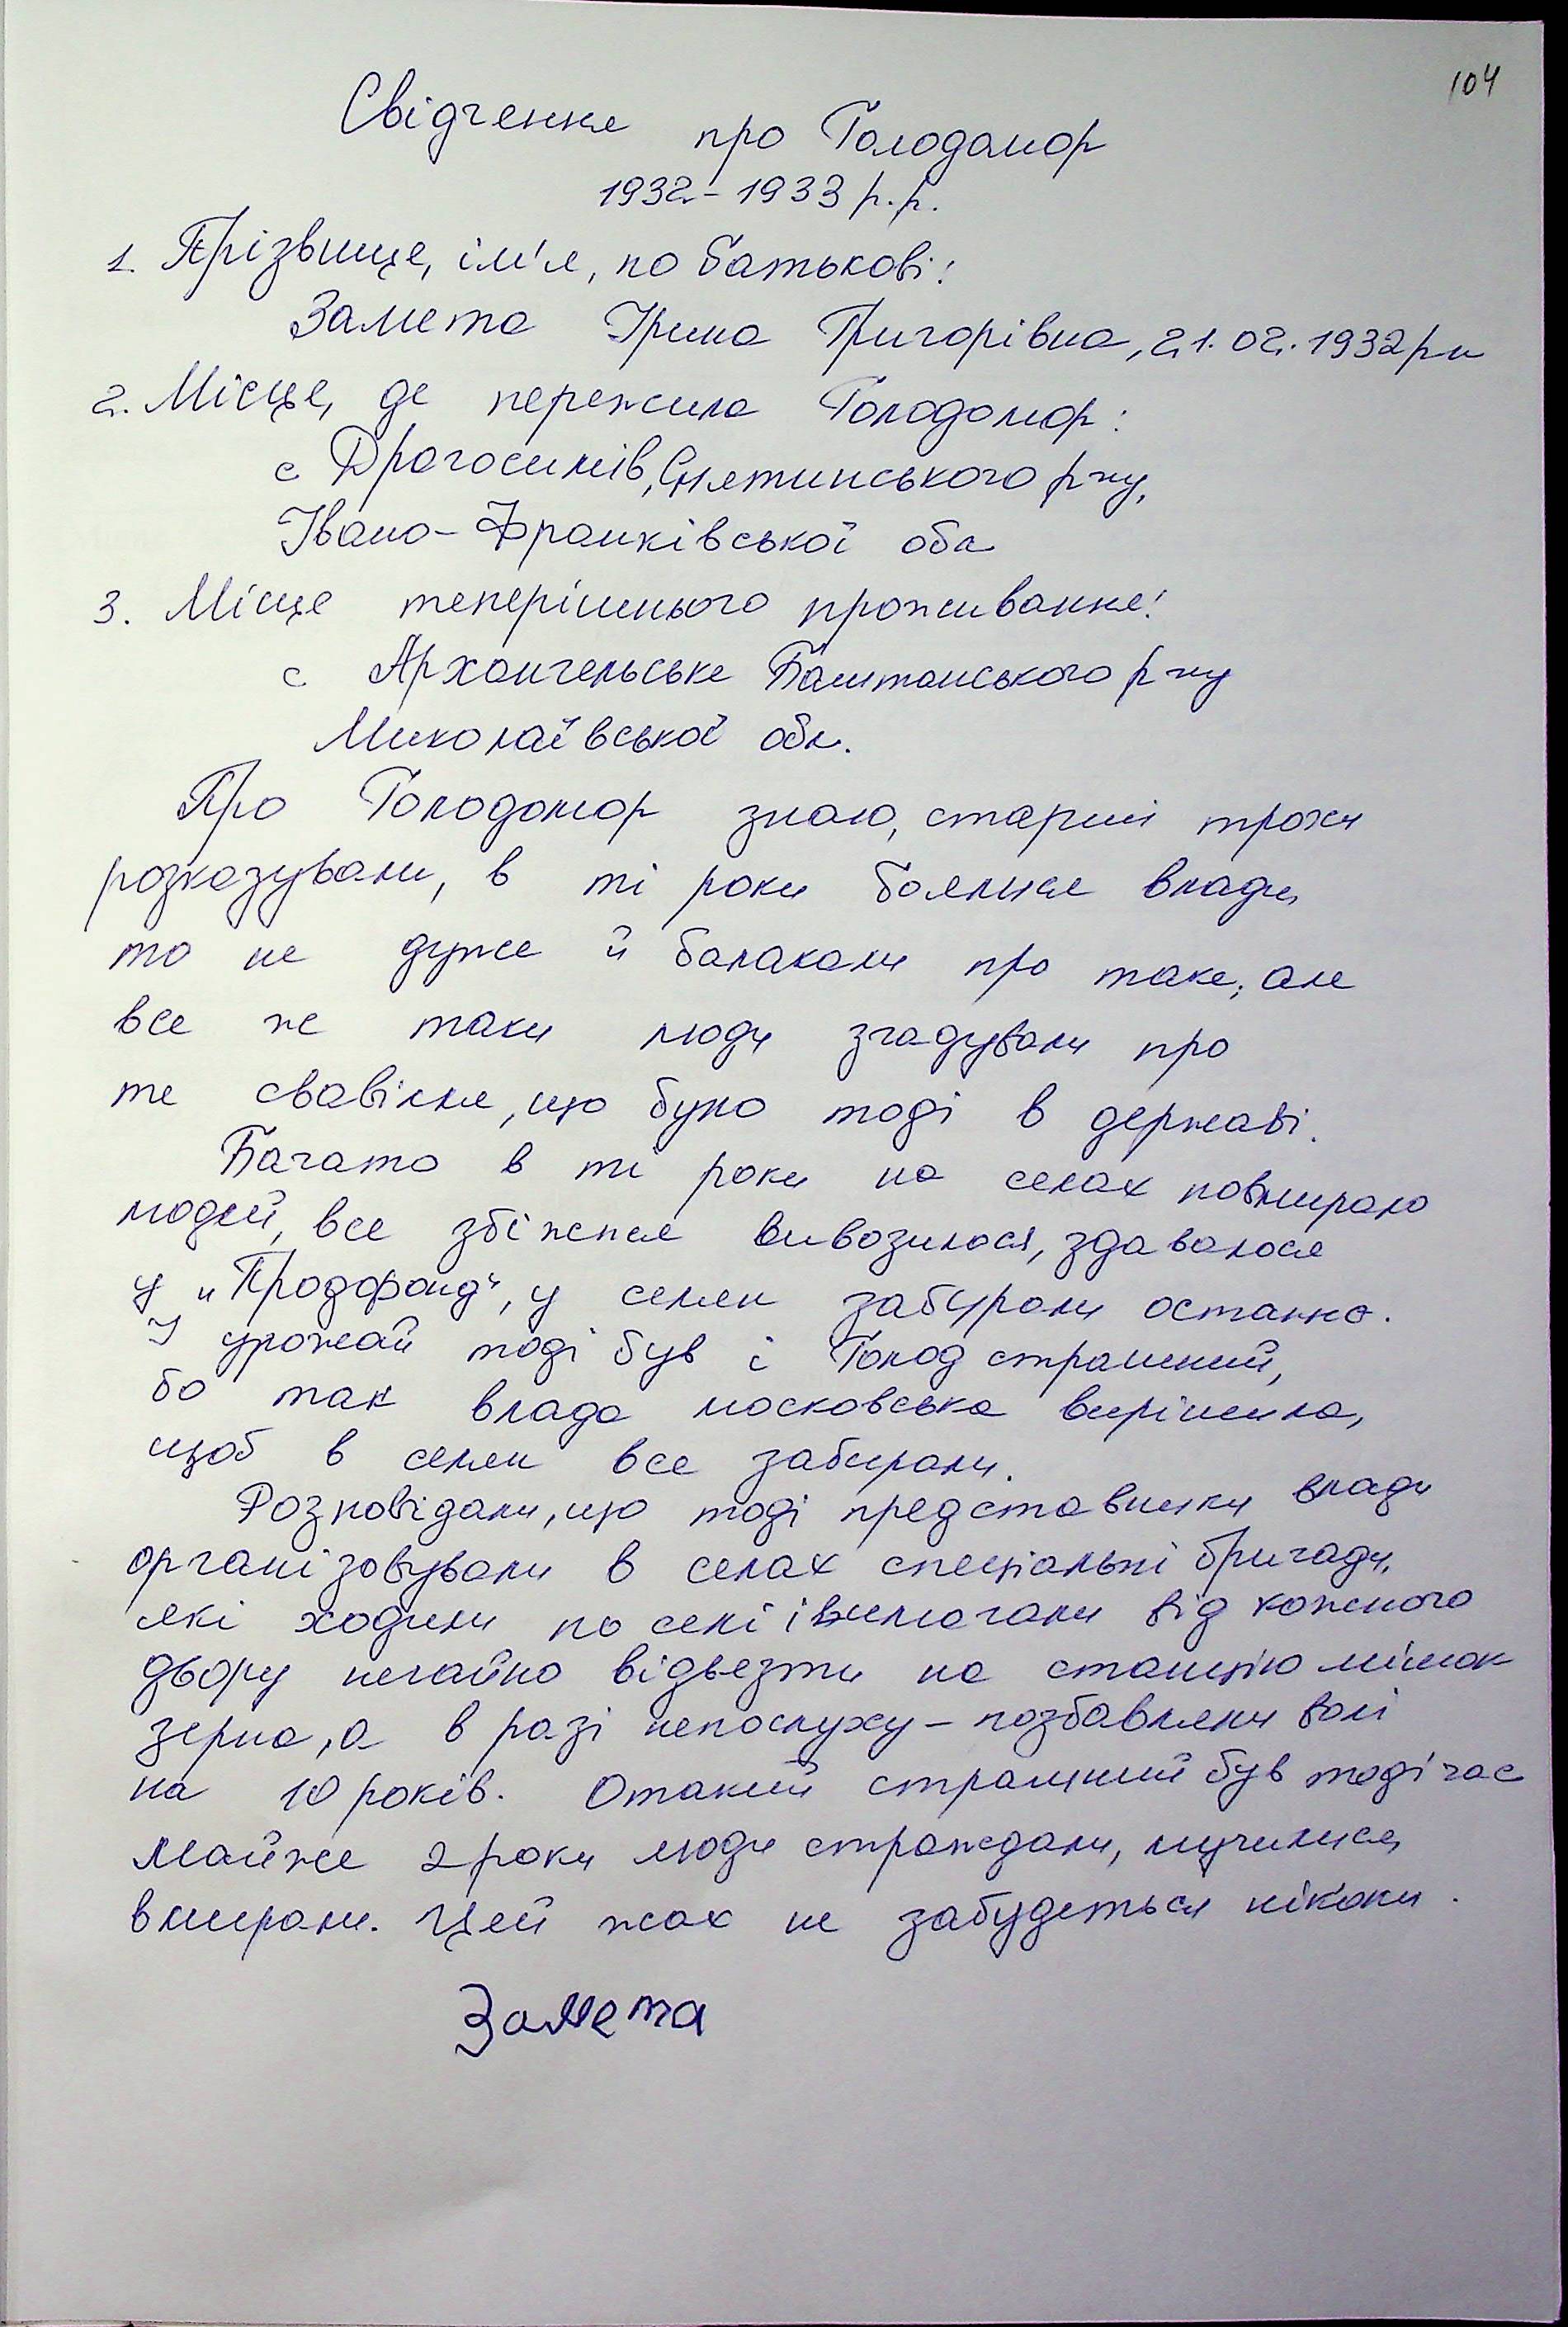 104
Свідчення про Голодомор
1932-1933 р.р.
1. Прізвище, ім'я, по батькові:
Замета Ірина Григорівна, 21.02.1932 рн
2. Місце, де пережила Голодомор:
с Драгосимів, Снятинського р-ну,
Івано-Франківської обл
3. Місце теперішнього проживання:
с Архангельське Баштанського р-ну
Миколаївської обл.
Про Голодомор знаю, старші трохи
розказували, в ті роки боялися влади,
то не дуже й балакали про таке, але
все ж таки люди згадували про
те свавілля, що було тоді в державі.
Багато в ті роки на селах повмирало
людей, все збіжжя вивозилося, здавалося
у "Продфонд", у селян забирали останнє.
І урожай тоді був і Голод страшний,
бо так влада московська вирішила,
щоб в селян все забирали.
Розповідали, що тоді представники влади
організовували в селах спеціальні бригади,
які ходили по селі і вимагали від кожного
двору негайно відвезти на станцію мішок
зерна, а в разі непослуху - позбавляли волі
на 10 років. Отакий страшний був тоді час
Майже 2 роки люди страждали, мучилися,
вмирали. Цей жах не забудеться ніколи.
Замета